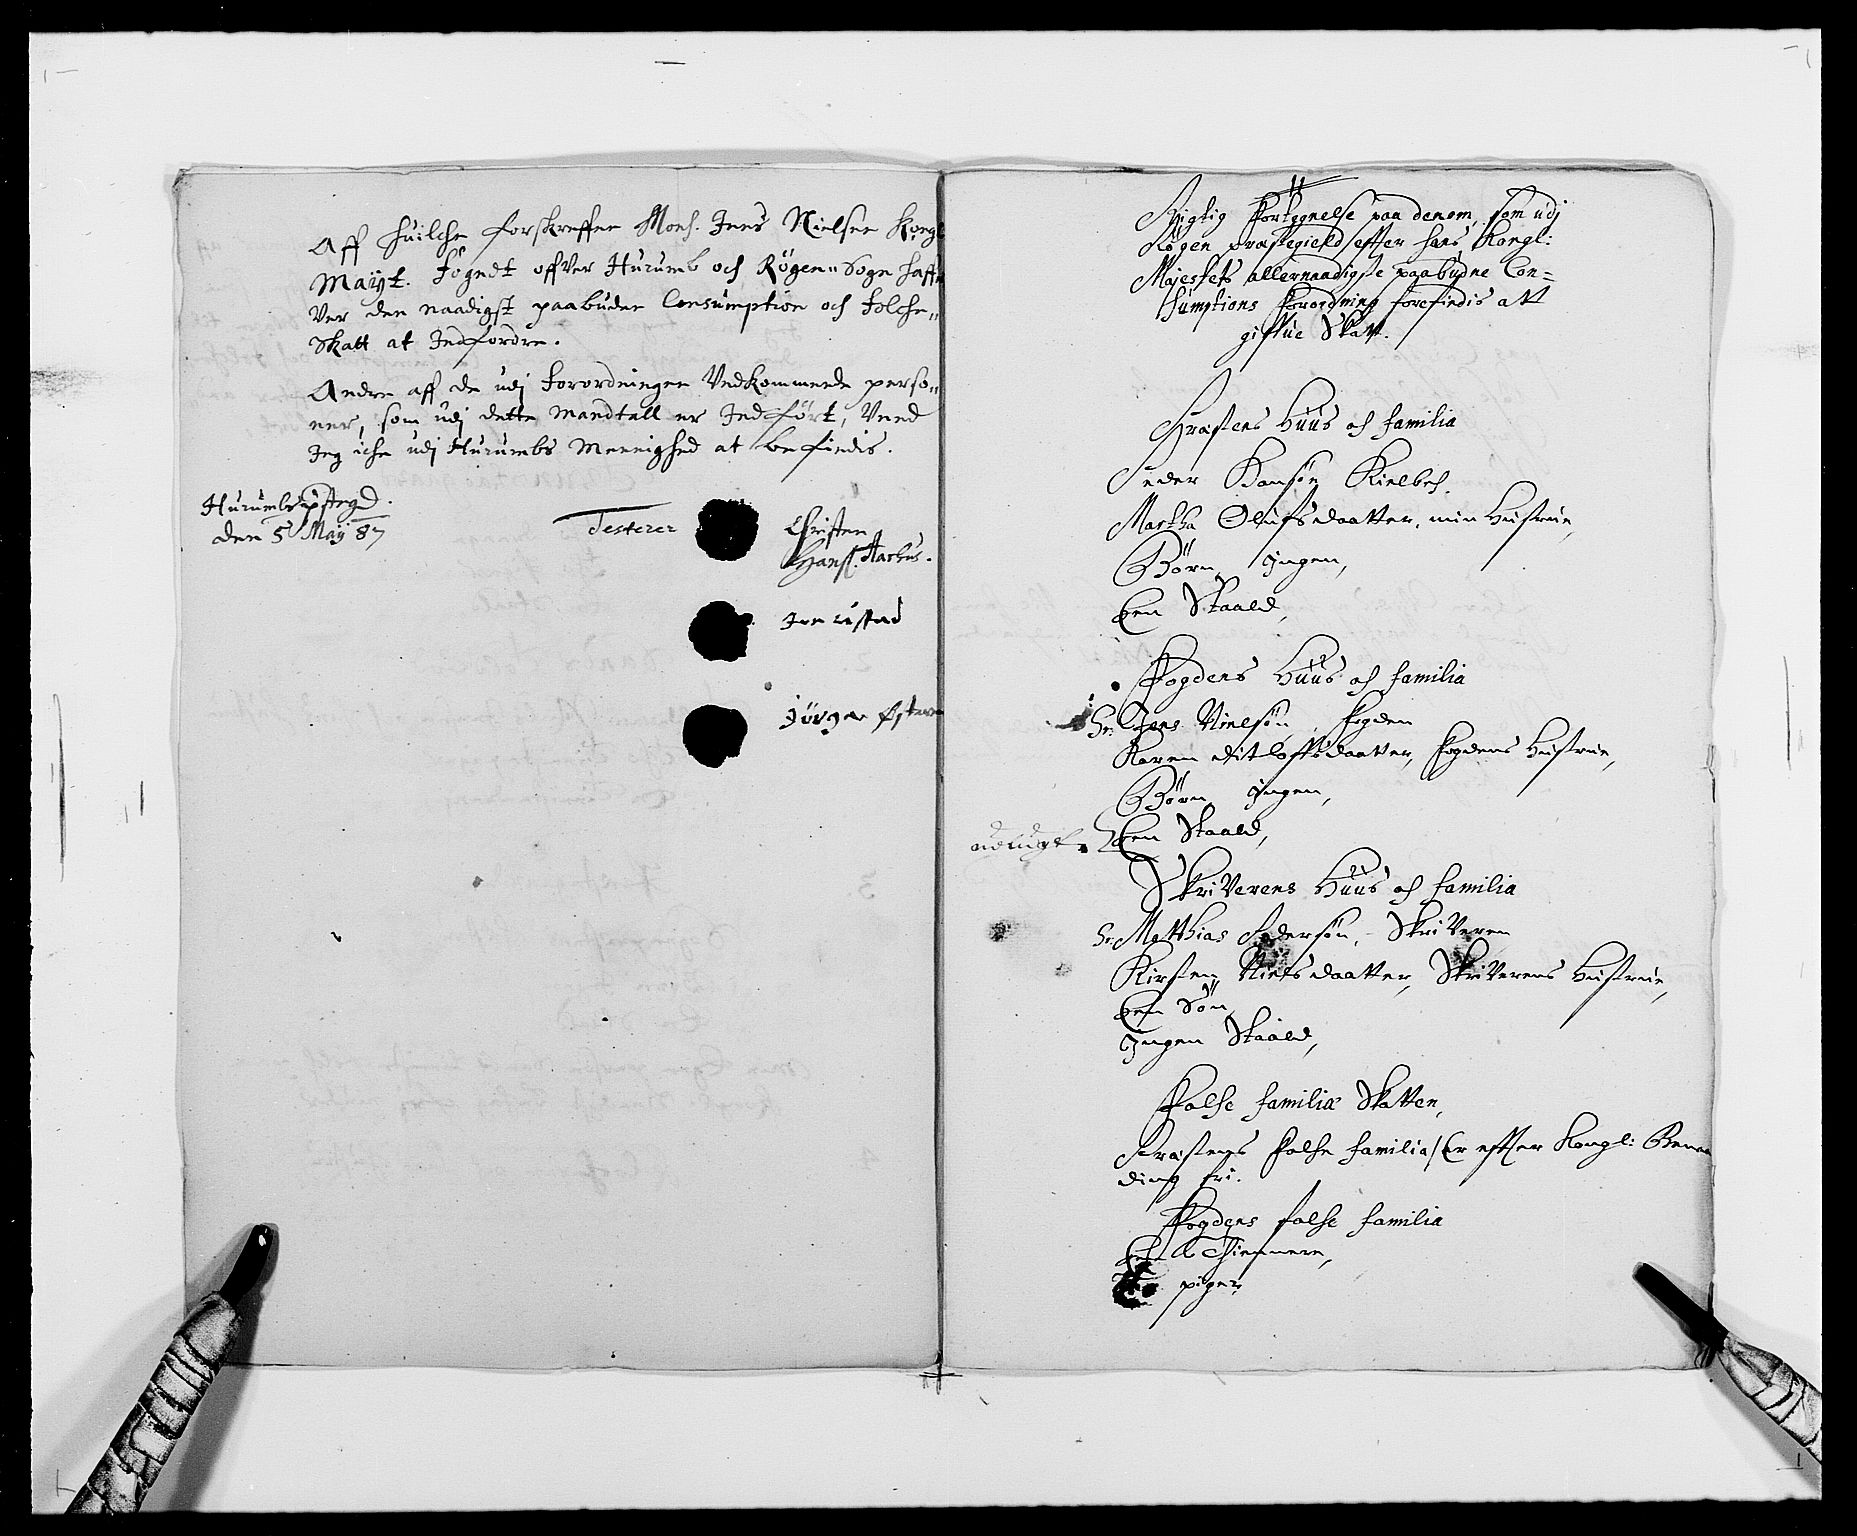 Aff huilche forskreffne Mons. Jens Nielsen Kongl
Mayt. fognet offver Hurumb och Røgen Sogn haff
Ver den naadigst paabuden Consumption och folche„
Skatt at Indfordre.
Andre aff de udj forordningen Vedkommende perso„
ner, som udj dette mandtall er Indført, Veed
Jeg iche udj Hurumbs Meenighed at befindis.
Hurumbs pstegd.
den 5 Maij 87
Testerer
Christen
Hanss. Aarhus.
Iver
Jørgen
Rigtig Fortegnelse paa denom, som udj
Røgen præstegield effter hans Kongl:
Majestets allernaadigste paabudne Con=
sumptions Forordning forefindis att
gifue Skatt.
Præstens Huus och familia
Peder Hansøn Kielbch
Martha Olufsdaatter, min Hustrue,
Børn Ingen,
Een Staald,
Fogdens Huus och familia
Sr. Jens Nielsøn, fogden
Karen Ditloffsdaatter, fogdens Hustrue,
Børn Ingen,
udlugt. Een Staald,
SkriVerens Huus och familia
Sr. Matthias Pedersøn, SkriVeren
Kirsten Nielsdaatter, SkriVerens Hustrue,
Een Søn
Ingen Staald,
Folche familiæ Skatten,
Præstens Folche familia/Er effter Kongl:
ding fri.
Fogdens folche familia
Thiennere,
piger